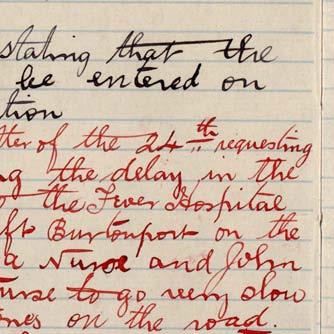 stating that the
be entered on
tion
tter of the 24th requesting
ng the delay in the
o the Fever Hospital
ft Burtonport on the
a Nurse and John
urse to go very slow
ones on the road.